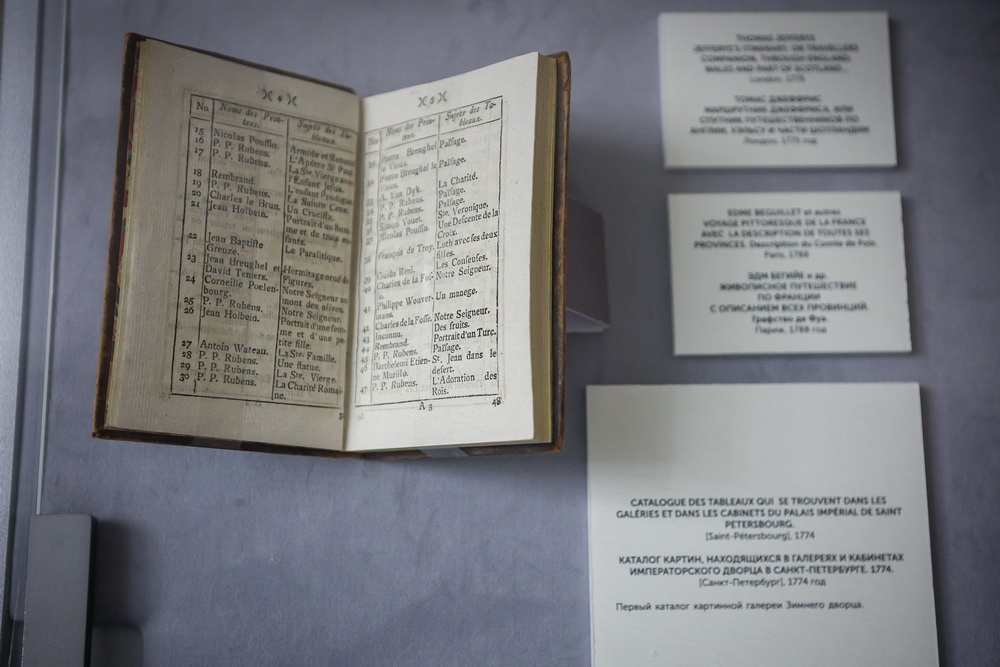 )( 4 )(
No
Noms des Pein-
tres.
Sujets des Ta-
bleaux.
15 Nicolas Poussin. Armide et Renaud
16 P. P. Rubens. L'Apôtre St. Paul
17 P. P. Rubens. La Ste Vierge avec
l'Enfant Jesus.
18 Rembrand. L'enfant Prodigue
19 P. P. Rubens. La Sainte Cene.
20 Charles le Brun. Un Crucifix.
21 Jean Holbein. Portrait d'un hom-
me et de trois en-
fants.
22 Jean Baptiste Le Paralitique.
Greuze.
23 Jean Breughel et Hermitage orné de
David Teniers. Figures.
24 Corneille Poelen- Notre Seigneur au
bourg. mont des olives.
25 P. P. Rubens. Notre Seigneur.
26 Jean Holbein. Portrait d'une fem-
me et d'une pe-
tite fille.
27 Antoin Wateau. La Ste. Famille.
28 P. P. Rubens. Une statue.
29 P. P. Rubens. La Ste. Vierge.
30 P. P. Rubens. La Charité Romai-
ne.
)( 5 )(
Noms des Pein-
tres.
Sujets des Ta-
bleaux.
Pierre Breughel Païsage.
le Vieux.
Pierre Breughel le Païsage.
Vieux.
A. Van Dyk. La Charité.
P. P. Rubens. Païsage.
P. P. Rubens. Païsage.
Simon Vouet. Ste. Veronique.
Nicolas Poussin. Une Descente de la
Croix.
François de Troy. Loth avec ses deux
filles.
Guido Reni. Les Couseuses.
Charles de la Fos- Notre Seigneur.
41 Philippe Wouver- Un manege.
mens.
42 Charles de la Fosse. Notre Seigneur.
43 Inconnu. Des fruits.
44 Rembrand. Portrait d'un Turc.
45 P. P. Rubens. Païsage.
46 Barthelemi Etien- St. Jean dans le
ne Murillo. desert.
47 P. P. Rubens. L'Adoration des
Rois.
A 3 48
THOMAS JEFFERYS
JEFFERYS'S ITINERARY; OR TRAVELLERS
COMPANION, THROUGH ENGLAND,
WALES AND PART OF SCOTLAND...
London, 1775
ТОМАС ДЖЕФФРИС
МАРШРУТНИК ДЖЕФФРИСА, ИЛИ
СПУТНИК ПУТЕШЕСТВЕННИКОВ ПО
АНГЛИИ, УЭЛЬСУ И ЧАСТИ ШОТЛАНДИИ
Лондон, 1775 год
EDME BEGUILLET et autres
VOYAGE PITTORESQUE DE LA FRANCE
AVEC LA DESCRIPTION DE TOUTES SES
PROVINCES. Description du Comté de Foix.
Paris, 1788
ЭДМ БЕГИЙЕ и др.
ЖИВОПИСНОЕ ПУТЕШЕСТВИЕ
ПО ФРАНЦИИ
С ОПИСАНИЕМ ВСЕХ ПРОВИНЦИЙ.
Графство де Фуа.
Париж, 1788 год
CATALOGUE DES TABLEAUX QUI SE TROUVENT DANS LES
GALÉRIES ET DANS LES CABINETS DU PALAIS IMPÉRIAL DE SAINT
PETERSBOURG.
[Saint-Pétersbourg], 1774
КАТАЛОГ КАРТИН, НАХОДЯЩИХСЯ В ГАЛЕРЕЯХ И КАБИНЕТАХ
ИМПЕРАТОРСКОГО ДВОРЦА В САНКТ-ПЕТЕРБУРГЕ. 1774.
[Санкт-Петербург], 1774 год
Первый каталог картинной галереи Зимнего дворца.